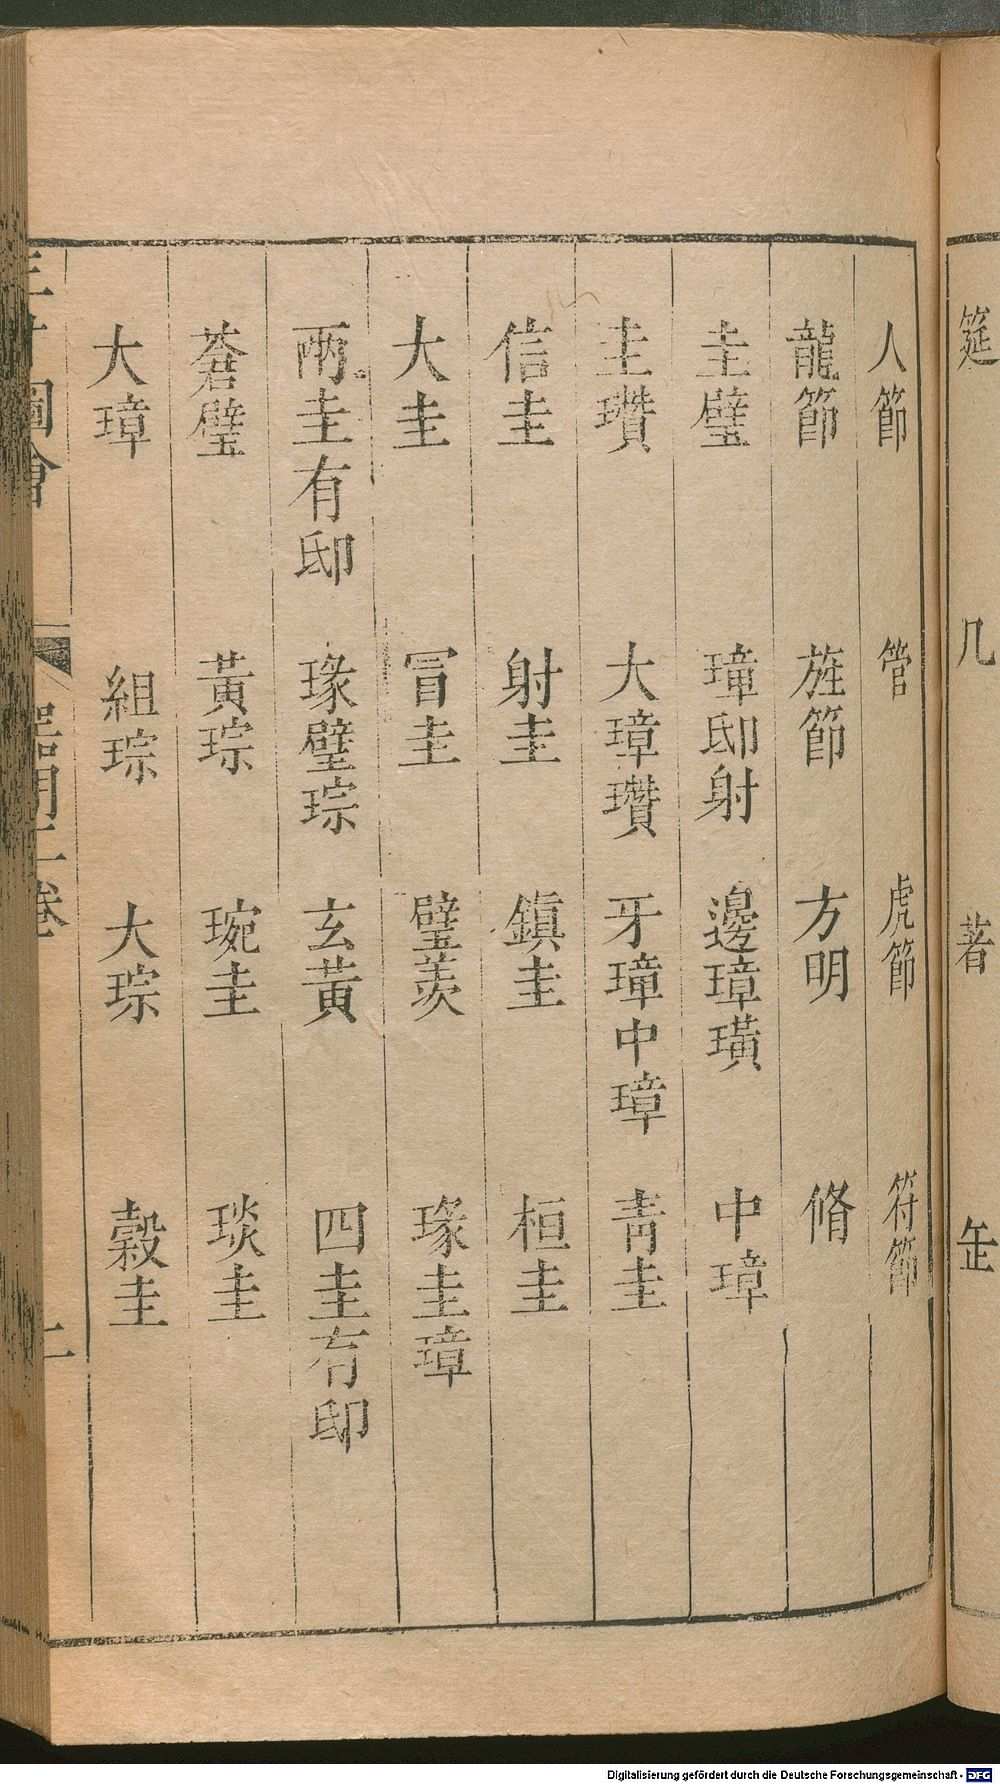 筵 几 著 缶
人節 管 虎節 符節
龍節 旌節 方明 脩
圭璧 璋邸射 邊璋璜 中璋
圭瓚 大璋瓚 牙璋中璋 靑圭
信圭 射圭 鎮圭 桓圭
大圭 冒圭 璧羨 瑑圭璋
兩圭有邸 瑑璧琮 玄黃 四圭有邸
蒼璧 黃琮 琬圭 琰圭
大璋 組琮 大琮 穀圭
三才圖會 器用二卷 二
Digitalisierung gefördert durch die Deutsche Forschungsgemeinschaft - DFG